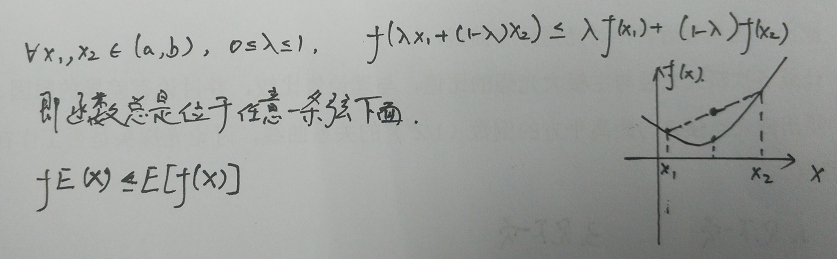 ∀x₁,x₂∈(a,b), 0≤λ≤1, f(λx₁+(1-λ)x₂)≤λf(x₁)+(1-λ)f(x₂)
即函数总是位于任意一条弦下面.
fE(X)≤E[f(X)]
f(x).
x₁ x₂ x